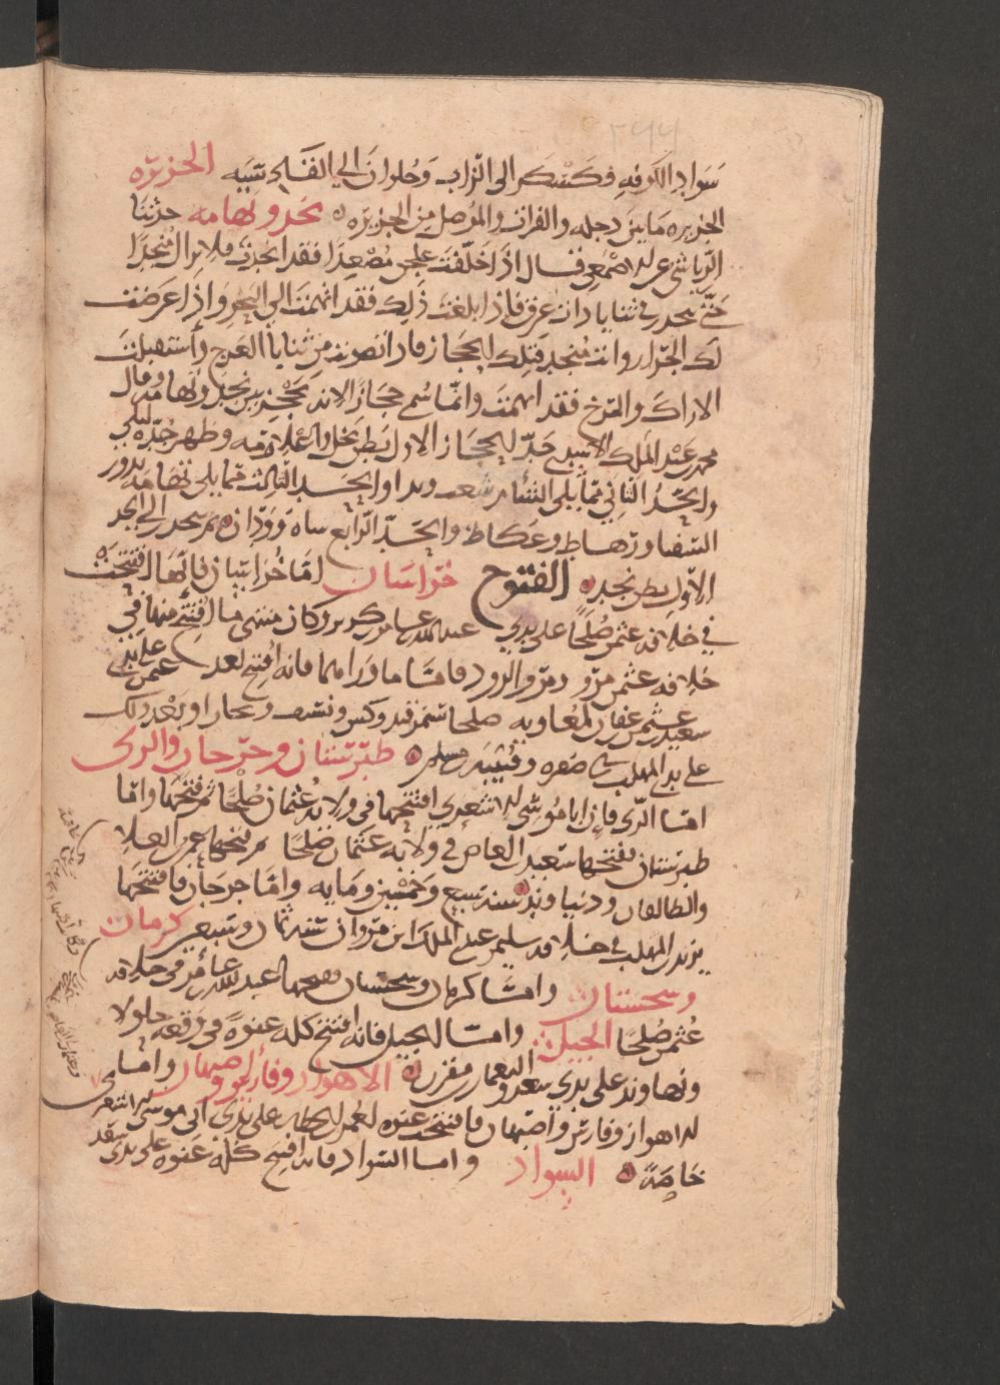 سواد الكوفه فكسكر الى الزاب وحلوان الى القادسيه الجزيره
الجزيره ما بين دجله والفرات والموصل من الجزيره نجد وتهامه حدثنا
الرياشي عن الاصمعي قال اذا خلفت عجلز مصعدا فقد انجدت فلا تزال منجدا
حتى تنحدر في ثنايا ذات عرق فاذا بلغت ذلك فقد اتهمت الى البحر واذا عرضت
لك الحرار وانت منجد فتلك الحجاز فاذا تصوبت من ثنايا العرج واستقبلت
الاراك والمرخ فقد اتهمت وانما سمي حجازا لانه حجز بين نجد وتهامه وقال
محمد بن عبد الملك الاسدي حد الحجاز الاول بطن نخل واعلا رمه وظهر حره ليلى
والحد الثاني مما يلي الشام شعب وبدا والحد الثالث مما يلي تهامه بدر و
السقيا ورهاط وعكاظ والحد الرابع ساه وودان ثم ينحدر الى الحد
الاول بطن نجد الفتوح خراسان اما خراسان فانها افتتحت
في خلافه عثمن صلحا على يدي عبد الله بن عامر بن كريز وكان منتهى ما افتتح منها في
خلافه عثمن مرو ومرو الروذ فاما ما وراهما فانه افتتح بعد عثمن على يدي
سعيد بن عثمن بن عفان لمعاويه صلحا سمرقند وكس ونسف وبخارا وبعد ذلك
على يدي المهلب بن ابي صفره وقتيبه بن مسلم طبرستان وجرجان والرى
اما الرى فان ابا موسى الاشعري افتتحها في ولايه عثمان صلحا ثم فتحها واما
طبرستان ففتحها سعيد بن العاص في ولايه عثمان صلحا ثم فتحها عمر بن العلا
والطالقان ودنباوند سنه سبع وخمسين ومايه واما جرجان فافتتحها
يزيد بن المهلب في خلافه سليمن بن عبد الملك ابن مروان سنه ثمان وتسعين كرمان
وسجستان واما كرمان وسجستان ففتحهما عبد الله بن عامر في خلافه
عثمن صلحا الجبل واما الجبل فانه افتتح كله عنوه في وقعه جلولا
ونهاوند على يدي سعد والنعمان بن مقرن الاهواز وفارس واصبهان واما
الاهواز وفارس واصبهان فافتتحت عنوه لعمر بن الخطاب على يدي ابي موسى الاشعري
خاصة السواد واما السواد فانه افتتح كله عنوه على يدي سعد